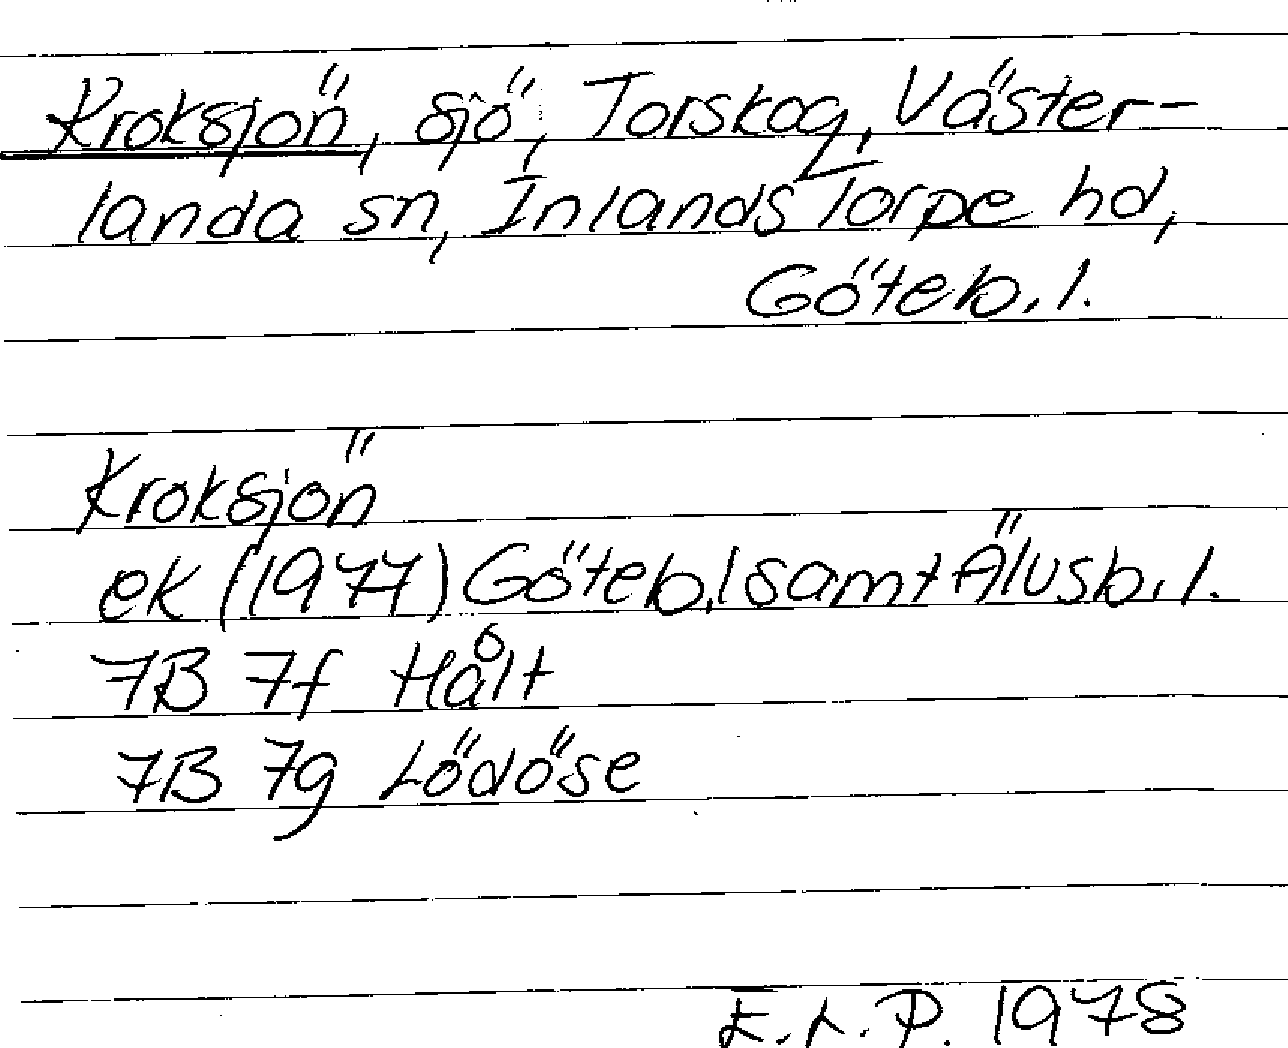 Kroksjön, sjö, Torskog, Väster-
landa sn, Inlands Torpe hd,
Göteb. l.
Kroksjön
ek (1977) Göteb. l samt Älvsb. l.
7B 7f Hålt
7B 7g Lödöse
E. L. P. 1978